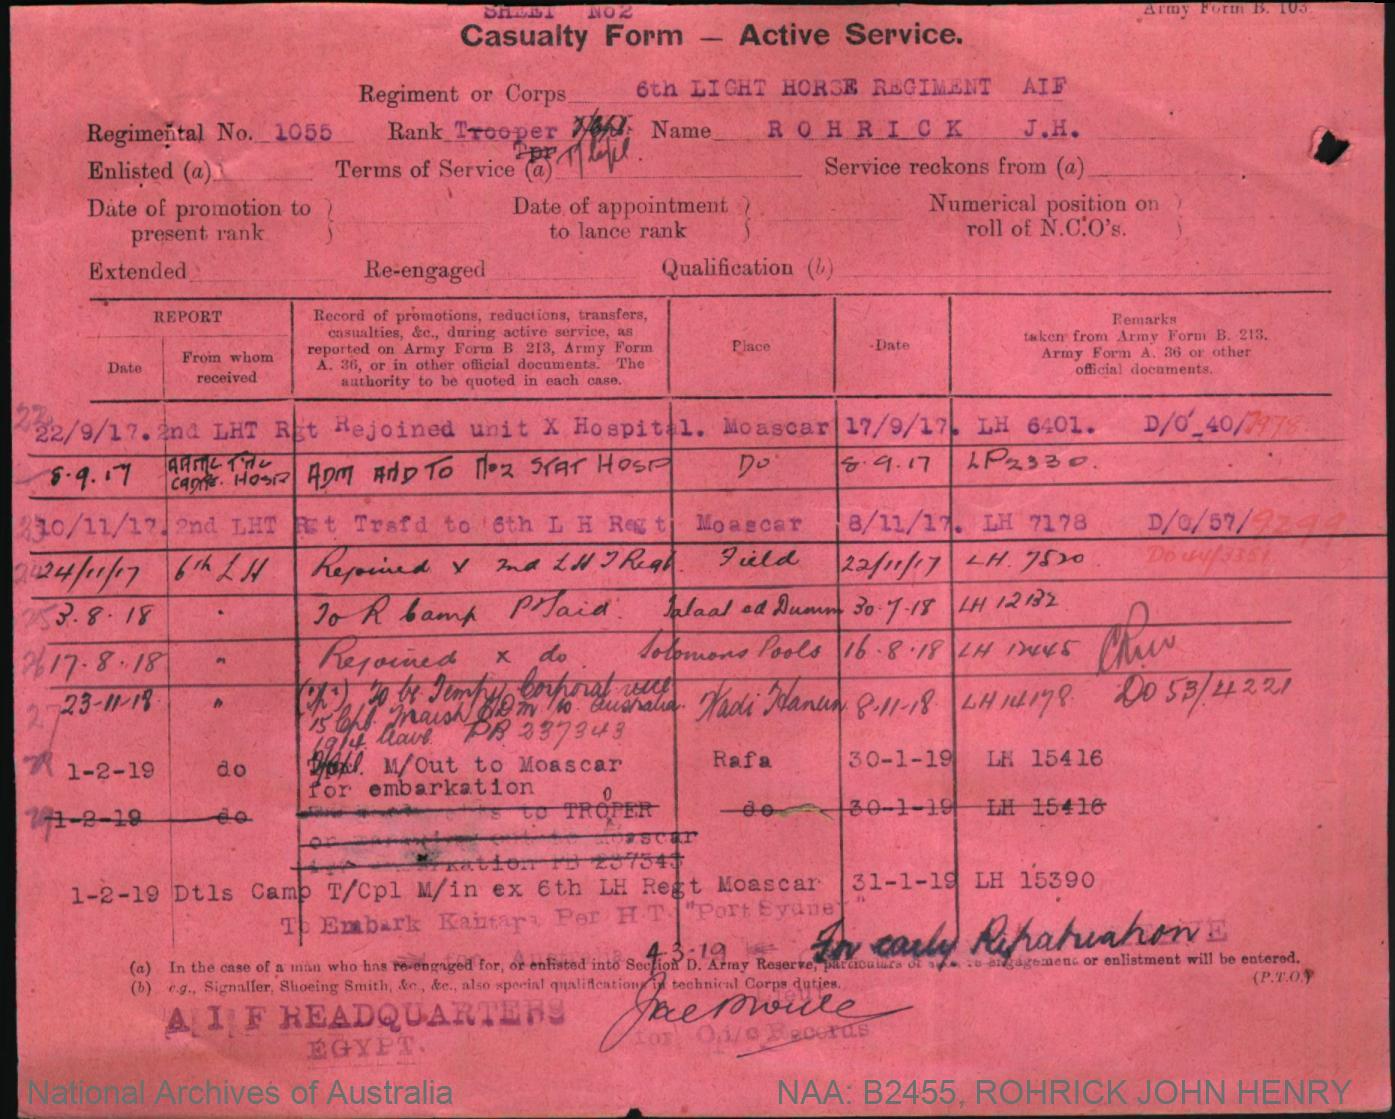 SHEET No2
Army Form B. 103.
Casualty Form — Active Service.
Regiment or Corps 6th LIGHT HORSE REGIMENT AIF
Regimental No. 1055 Rank Trooper Name ROHRICK J.H.
Tpr T/Cpl
Enlisted (a) Terms of Service (a) Service reckons from (a)
Date of promotion to present rank } Date of appointment to lance rank } Numerical position on roll of N.C.O's. }
Extended Re-engaged Qualification (b)
REPORT
Date From whom received
Record of promotions, reductions, transfers, casualties, &c., during active service, as reported on Army Form B 213, Army Form A. 36, or in other official documents. The authority to be quoted in each case.
Place
Date
Remarks taken from Army Form B. 213. Army Form A. 36 or other official documents.
22 22/9/17. 2nd LHT Rgt Rejoined unit X Hospital. Moascar 17/9/17. LH 6401. D/O 40/
8.9.17 HOSP ADM AND TO No2 STAT HOSP DO 8.9.17 LP2330.
23 10/11/17. 2nd LHT Rgt Trafd to 6th L H Regt Moascar 8/11/17. LH 7178 D/O/57/9299
24 24/11/17 6th LH Rejoined x 2nd L H T Regt. Field 22/11/17 LH. 7520
25 3.8.18 " To R Camp P Said. Talaat ed Dumm 30.7.18 LH 12132
26 17.8.18 " Rejoined x do Solomons Pools 16.8.18 LH 12445
27 23-11-18 " To be Temp/ Corporal vice Wadi Hanein 8.11.18 LH 14178. DO 53/4221
Marsh to Australia
1914 leave PB 237343
1-2-19 do T/Cpl. M/Out to Moascar Rafa 30-1-19 LH 15416
for embarkation
29 1-2-19 do to TROPER do 30-1-19 LH 15416
on out to Moascar
embarkation PB 237343
1-2-19 Dtls Camp T/Cpl M/in ex 6th LH Regt Moascar 31-1-19 LH 15390
To Embark Kantara Per H.T. "Port Sydney"
4.3.19 For early Repatriation
(a) In the case of a man who has re-engaged for, or enlisted into Section D. Army Reserve, particulars of such re-engagement or enlistment will be entered.
(b) e.g., Signaller, Shoeing Smith, &c., &c., also special qualifications in technical Corps duties. (P.T.O.)
A I F HEADQUARTERS
EGYPT.
for O.i/c Records
National Archives of Australia NAA: B2455, ROHRICK JOHN HENRY